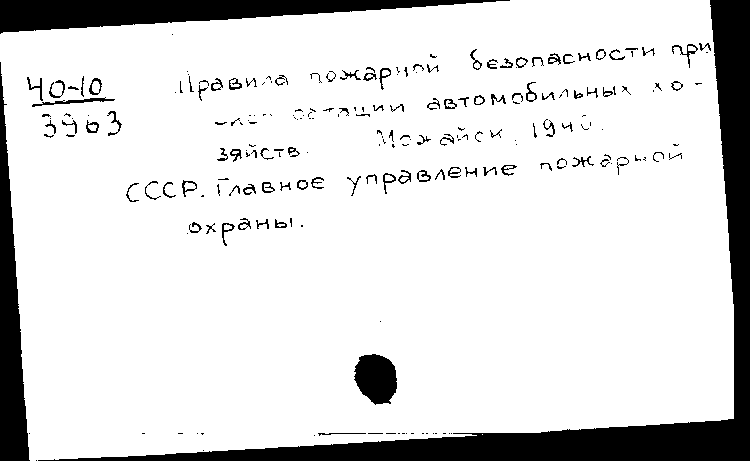 40-10 Правила пожарной безопасности при
3963 автомобильных хо-
зяйств. Можайск, 1940.
СССР. Главное управление пожарной
охраны.